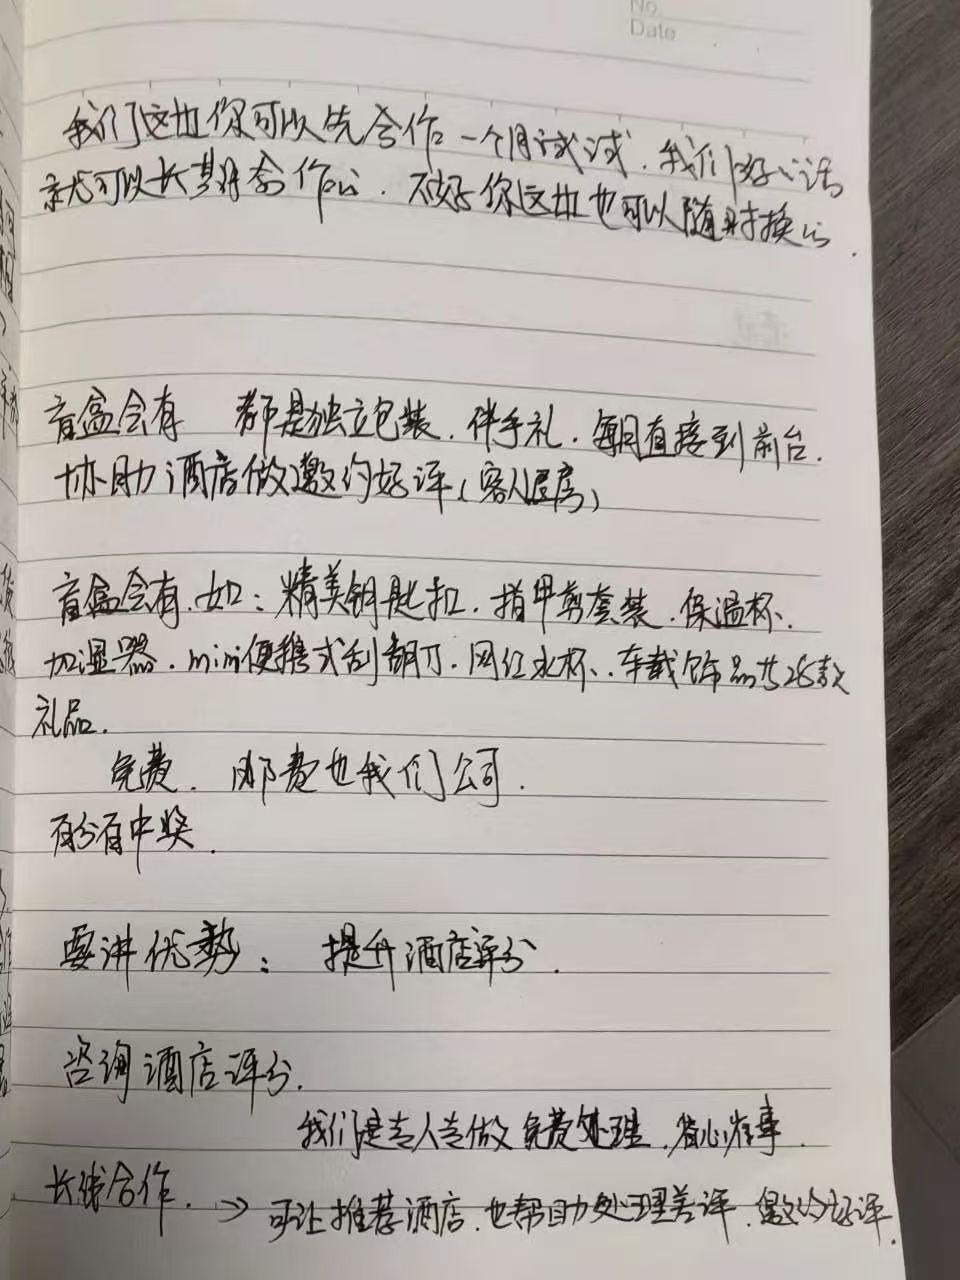 No.
Date
我们这边你可以先合作一个月试试，我们好的话
就可以长期合作的，不好你这边也可以随时换的.
盲盒会有 都是独立包装，伴手礼，每月直接到前台.
协助酒店做邀约好评（客人退房）
盲盒会有，如：精美钥匙扣，指甲剪套装，保温杯、
加湿器，mini便携式刮胡刀，网红水杯、车载饰品共26款
礼品.
免费，邮费也我们公司.
百分百中奖.
要讲优势： 提升酒店评分.
咨询酒店评分.
我们是专人专做免费处理，省心省事.
长线合作. → 可让推荐酒店，也帮助处理差评，邀约好评.